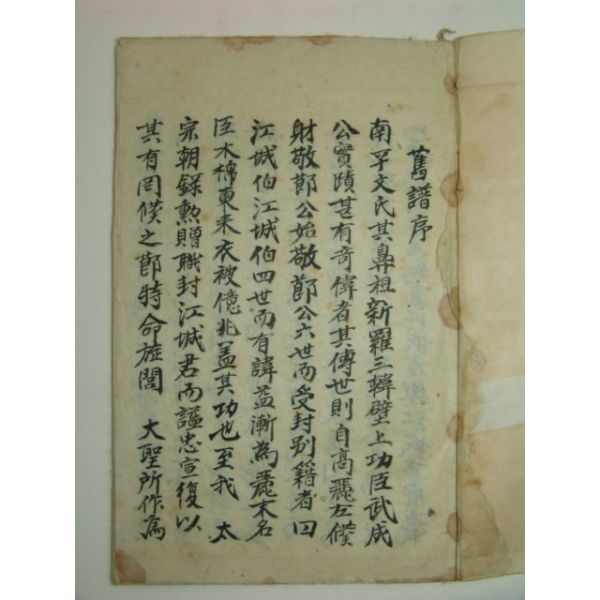 舊譜序
南平文氏其鼻祖新羅三韓壁上功臣武成
公實蹟甚有奇偉者其傳世則自高麗左僕
財敬節公始敬節公六世而受封別籍者曰
江城伯江城伯四世而有諱益漸為麗末名
臣木棉東來衣被億兆盖其功也至我 太
宗朝錄勲贈職封江城君而諡忠宣復以
其有罔僕之節特命㫌閭 大聖所作為